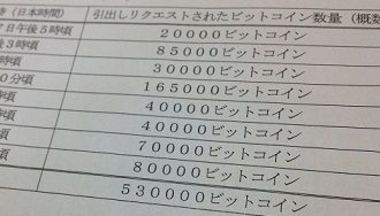 (日本時間) 引出しリクエストされたビットコイン数量(概数
日午後5時頃 20000ビットコイン
3時頃 85000ビットコイン
頃 30000ビットコイン
0分頃 165000ビットコイン
頃 40000ビットコイン
頃 40000ビットコイン
頃 70000ビットコイン
頃 80000ビットコイン
530000ビットコイン